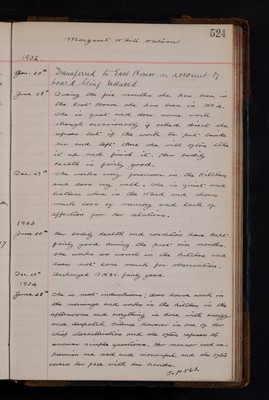 Margaret White Watson
524
1902
Jan. 20th Transferred to East House on account of
board being reduced
June 28th During the six months she has been in
the East House she has been in W 4.
She is quiet and does some work
though occasionally if asked direct she
refuses but if the work be put beside
her and left there she will often take
it up and finish it. Her bodily
health is fairly good.
Dec. 27th She works every forenoon in the kitchen
and does very well. She is quiet and
listless when in the ward and shows
much loss of memory and lack of
affection for her relations.
1903
June 30th Her bodily health and condition have kept
fairly good during the past six months.
She works as usual in the kitchen and
does not care much for observation.
Dec 31st Unchanged. B.H. fairly good.
1904
June 28th She is not industrious; does house work in
the mornings and works in the kitchen in the
afternoons and everything is done with energy
and despatch. Silence however is one of her
chief characteristics and she often refuses to
answer simple questions. Her manner and ex-
pression are sad and mournful and she often
covers her face with her hands.
To p 565.